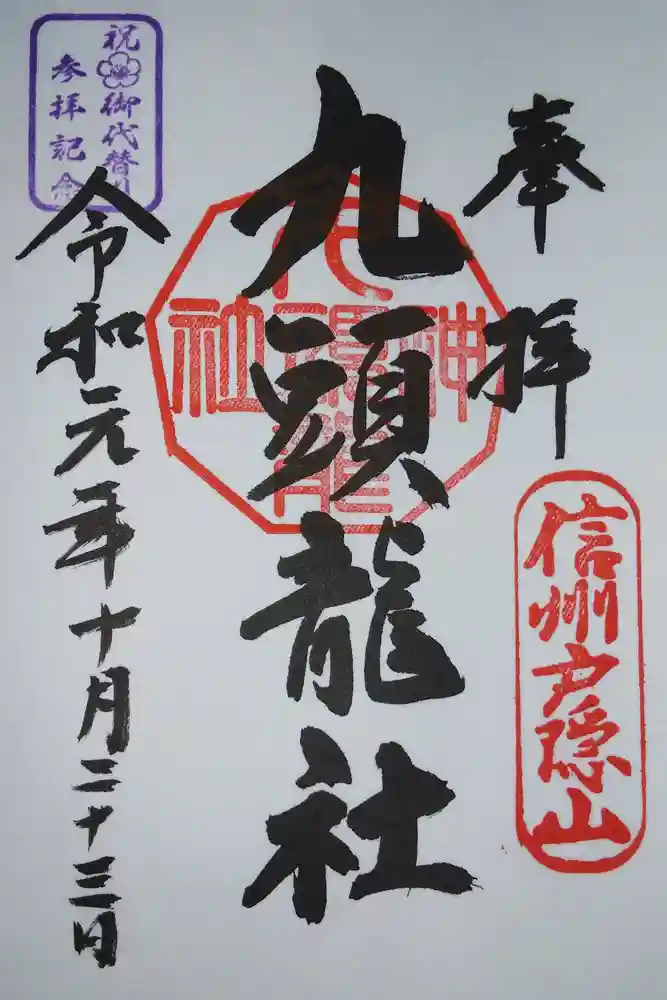 奉拝
信州戸隠山
九頭龍社
令和元年十月二十三日
祝 御代替り
参拝記念